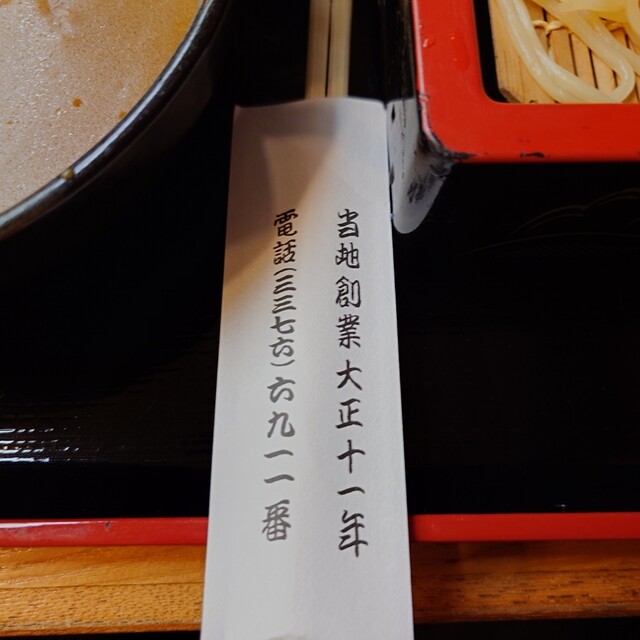 当地創業大正十一年
電話(三三七六)六九一一番